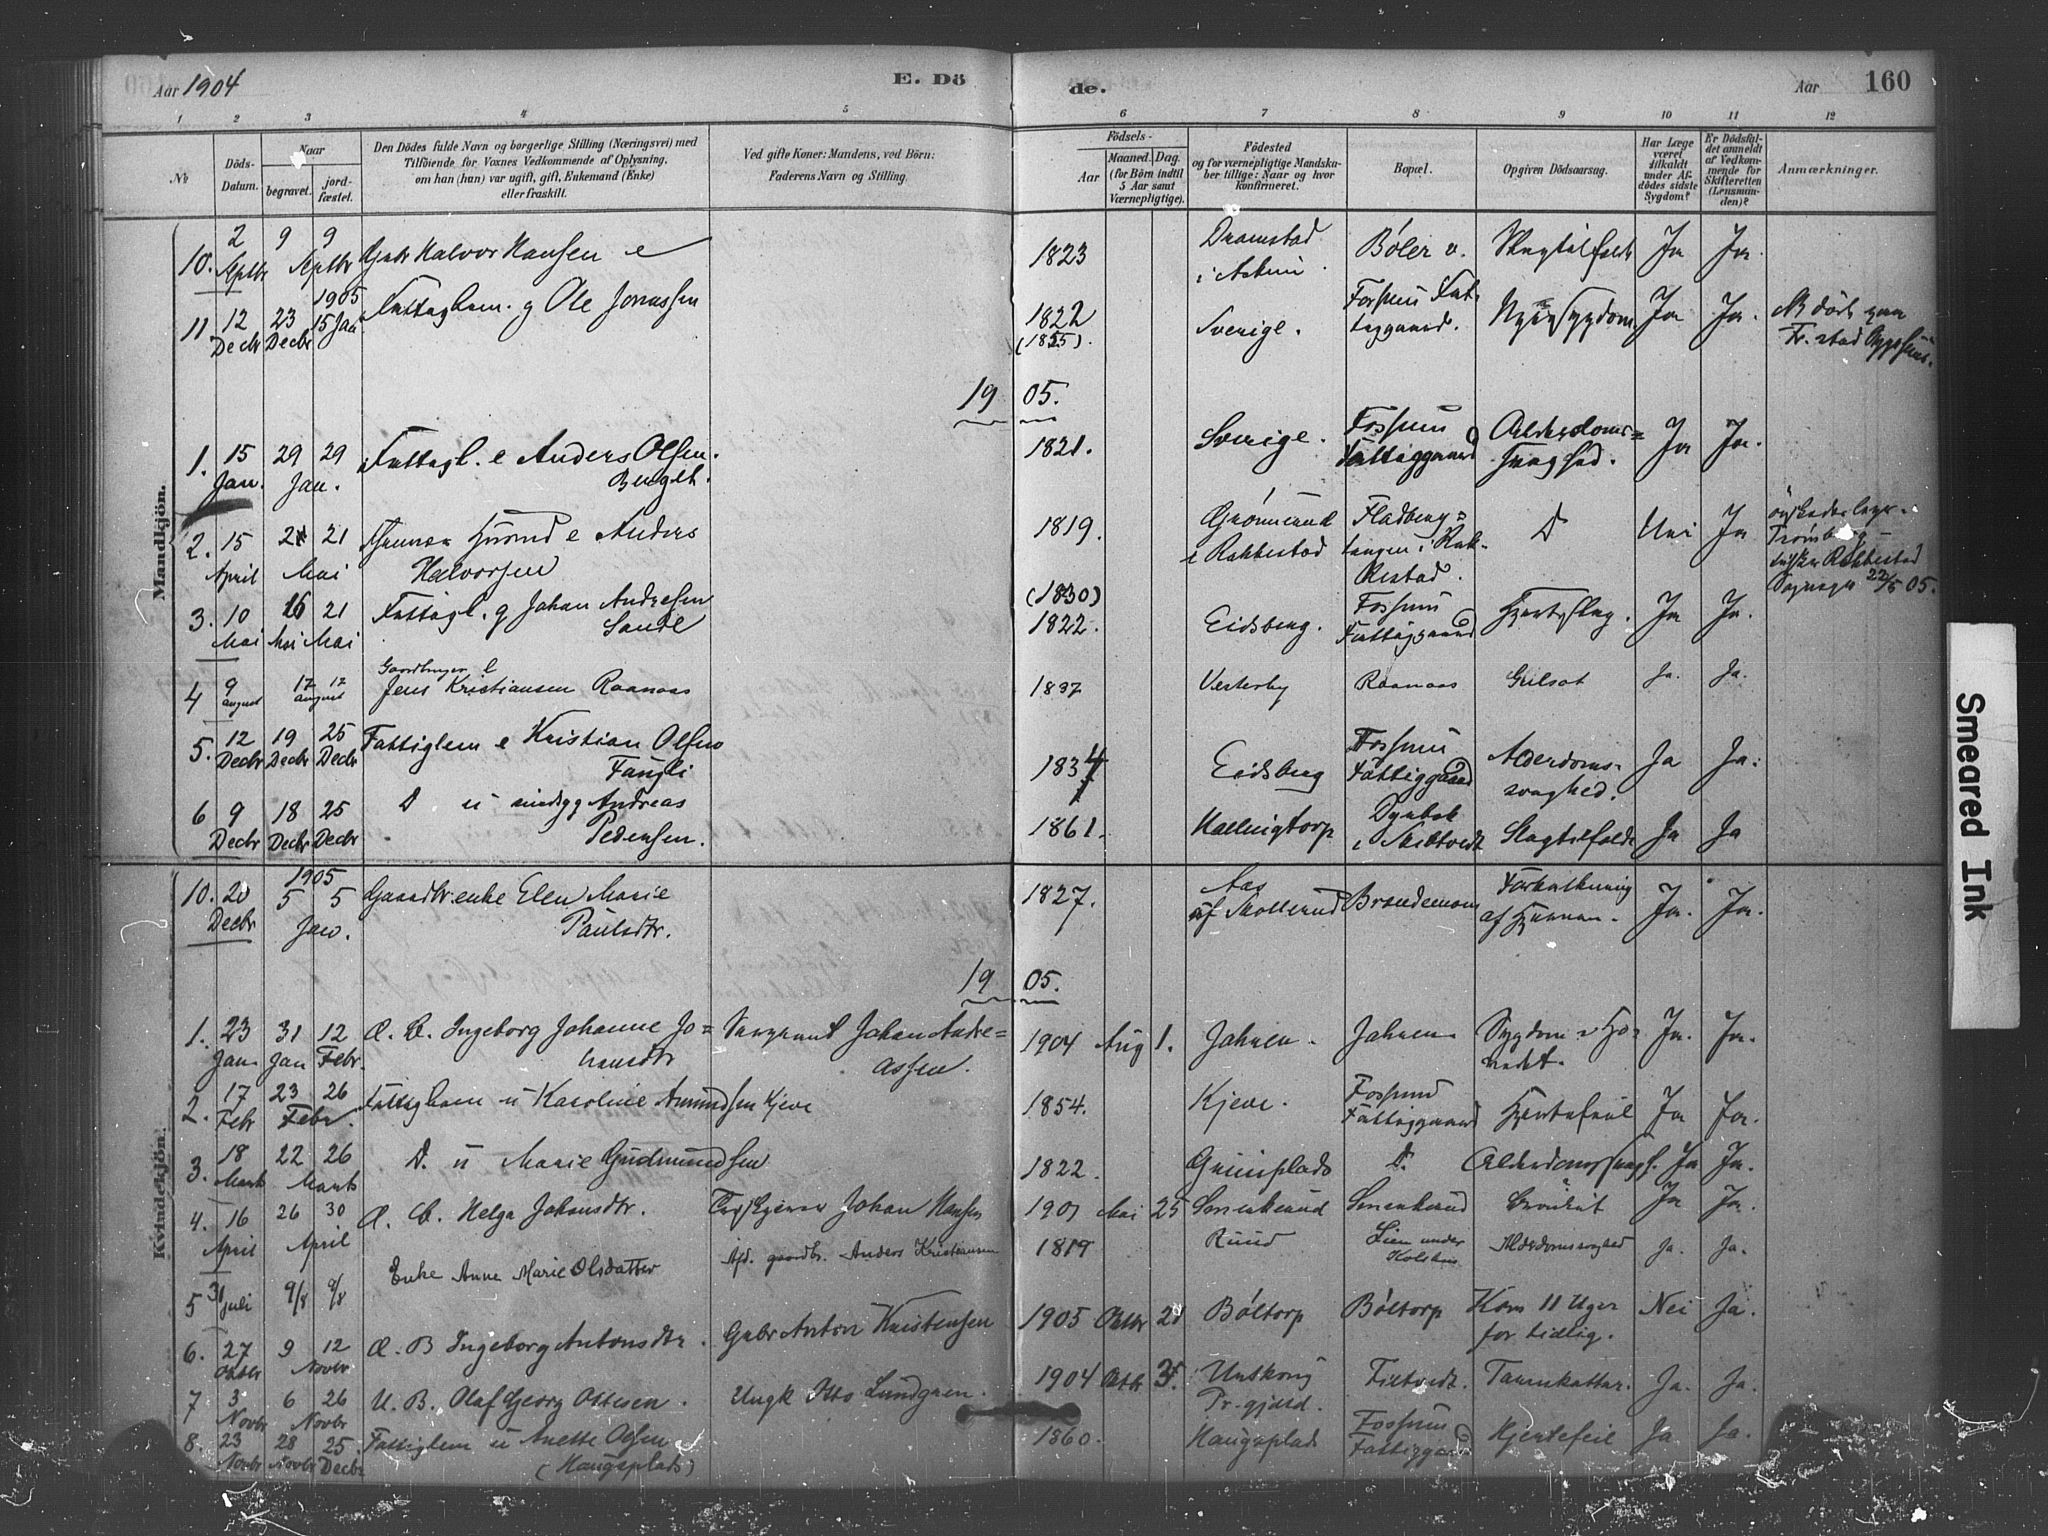 Aar 1904
E. Dö
de.
Aar
160
1 2 3 4 5 6 7 8 9 10 11 12
№
Döds-
Datum.
Naar
begravet.
jord-
fæstet.
Den Dödes fulde Navn og borgerlige Stilling (Næringsvei) med
Tilföiende for Voxnes Vedkommende af Oplysning,
om han (hun) var ugift, gift, Enkemand (Enke)
eller fraskilt.
Ved gifte Koner: Mandens, ved Börn:
Faderens Navn og Stilling.
Födsels-
Aar
Maaned. Dag.
(for Börn indtil
5 Aar samt
Værnepligtige).
Födested
og for værnepligtige Mandska-
ber tillige: Naar og hvor
konfirmeret.
Bopæl.
Opgiven Dödsaarsag.
Har Læge
været
tilkaldt
under Af-
dödes sidste
Sygdom?
Er Dödsfal-
det anmeldt
af Vedkom-
mende for
Skifteretten
(Lensman-
den)?
Anmærkninger.
Mandkjön.
10. 2 Septbr 9 9 Septbr Gbr Halvor Hansen e 1823 Dramstad i Askim Bøler v. Slagtilfælde Ja Ja.
11. 12 Decbr 23 Decbr 1905 15 Jan Fattiglem. g Ole Jonassen 1822 (1825). Sverige. Fossum Fattiggaard. Ja Ja. Fr. stad Sygehus.
1905.
1. 15 Jan. 29 29 Jan. Fattigl. e Anders Olsen. 1821. Sverige. Fossum Fattiggaard Alderdoms= svaghed. Ja Ja.
2. 15 April 21 21 Mai e Anders Halvorsen 1819. i Rakkestad i Rakkestad. D Nei Ja Rakkestad 22/5 05.
3. 10 Mai 16 Mai 21 Mai Fattigl. g Johan Andresen Sande (1830) 1822. Eidsberg. Fossum Fattiggaard Hjerteslag. Ja Ja.
4 9 august 17 17 august Gaardbruger e Jens Kristiansen Raanaas 1837 Vesterby Raanaas Gulsot Ja. Ja.
5. 12 Decbr 19 Decbr 25 Decbr Fattiglem e Kristian Olsen 1834 Eidsberg Fossum Fattiggaard Alderdoms- svaghed. Ja Ja.
6 9 Decbr 18 Decbr 25 Decbr D u Andreas Pedersen. 1861. Hællingtorp i Skiptvedt Slagtilfælde Ja Ja
Kvindekjön.
10. 20 Decbr 1905 5 5 Jan. Gaardbr.enke Elen Marie Paulsdtr. 1827. Aas Brandemoen Forkalkning af Hjernen. Ja. Ja.
1905.
1. 23 Jan 31 Jan 12 Febr. Æ. B. Ingeborg Johanne Jo= hansdtr Sergeant Johan Andre= assen. 1904 Aug 1. Jahren. Jahren Sygdom i Ho- vedet. Ja. Ja.
2. 17 Febr 23 26 Febr. Fattiglem u Karoline Amundsen Kjeve 1854. Kjeve. Fossum Fattiggaard Hjertefeil Ja Ja.
3. 18 Marts 22 26 Marts D. u Marie Gudmundsen 1822. Grinisplads D. Alderdomssvagh. Ja Ja.
4. 16 April 26 30 April Æ. B. Helga Johansdtr. Johan Hansen 1901 Mai 25 Ja Ja.
5 31 juli 9/8 9/8 Enke Anne Marie Olsdatter Afd. gaardbr. Anders Kristiansen 1819 Ruud Lien under Alderdomssvaghed Ja. Ja.
6. 27 Oktbr 9 12 Novbr Æ. B Ingeborg Antonsdtr. Gbr Anton Kristensen 1905 Oktbr Böltorp Böltorp Kom 11 Uger for tidlig. Nei Ja.
7 3 Novbr 6 26 Novbr U. B. Olaf Georg Ottesen. Ungk Otto Lundgren. 1904 Oktbr Ja. Ja.
8. 23 Novbr 28 Novbr 25. Decbr Fattiglem u Anette Olsen (Haugsplads) 1860. Haugsplads Fossum Fattiggaard Hjertefeil Ja Ja.
Smeared Ink